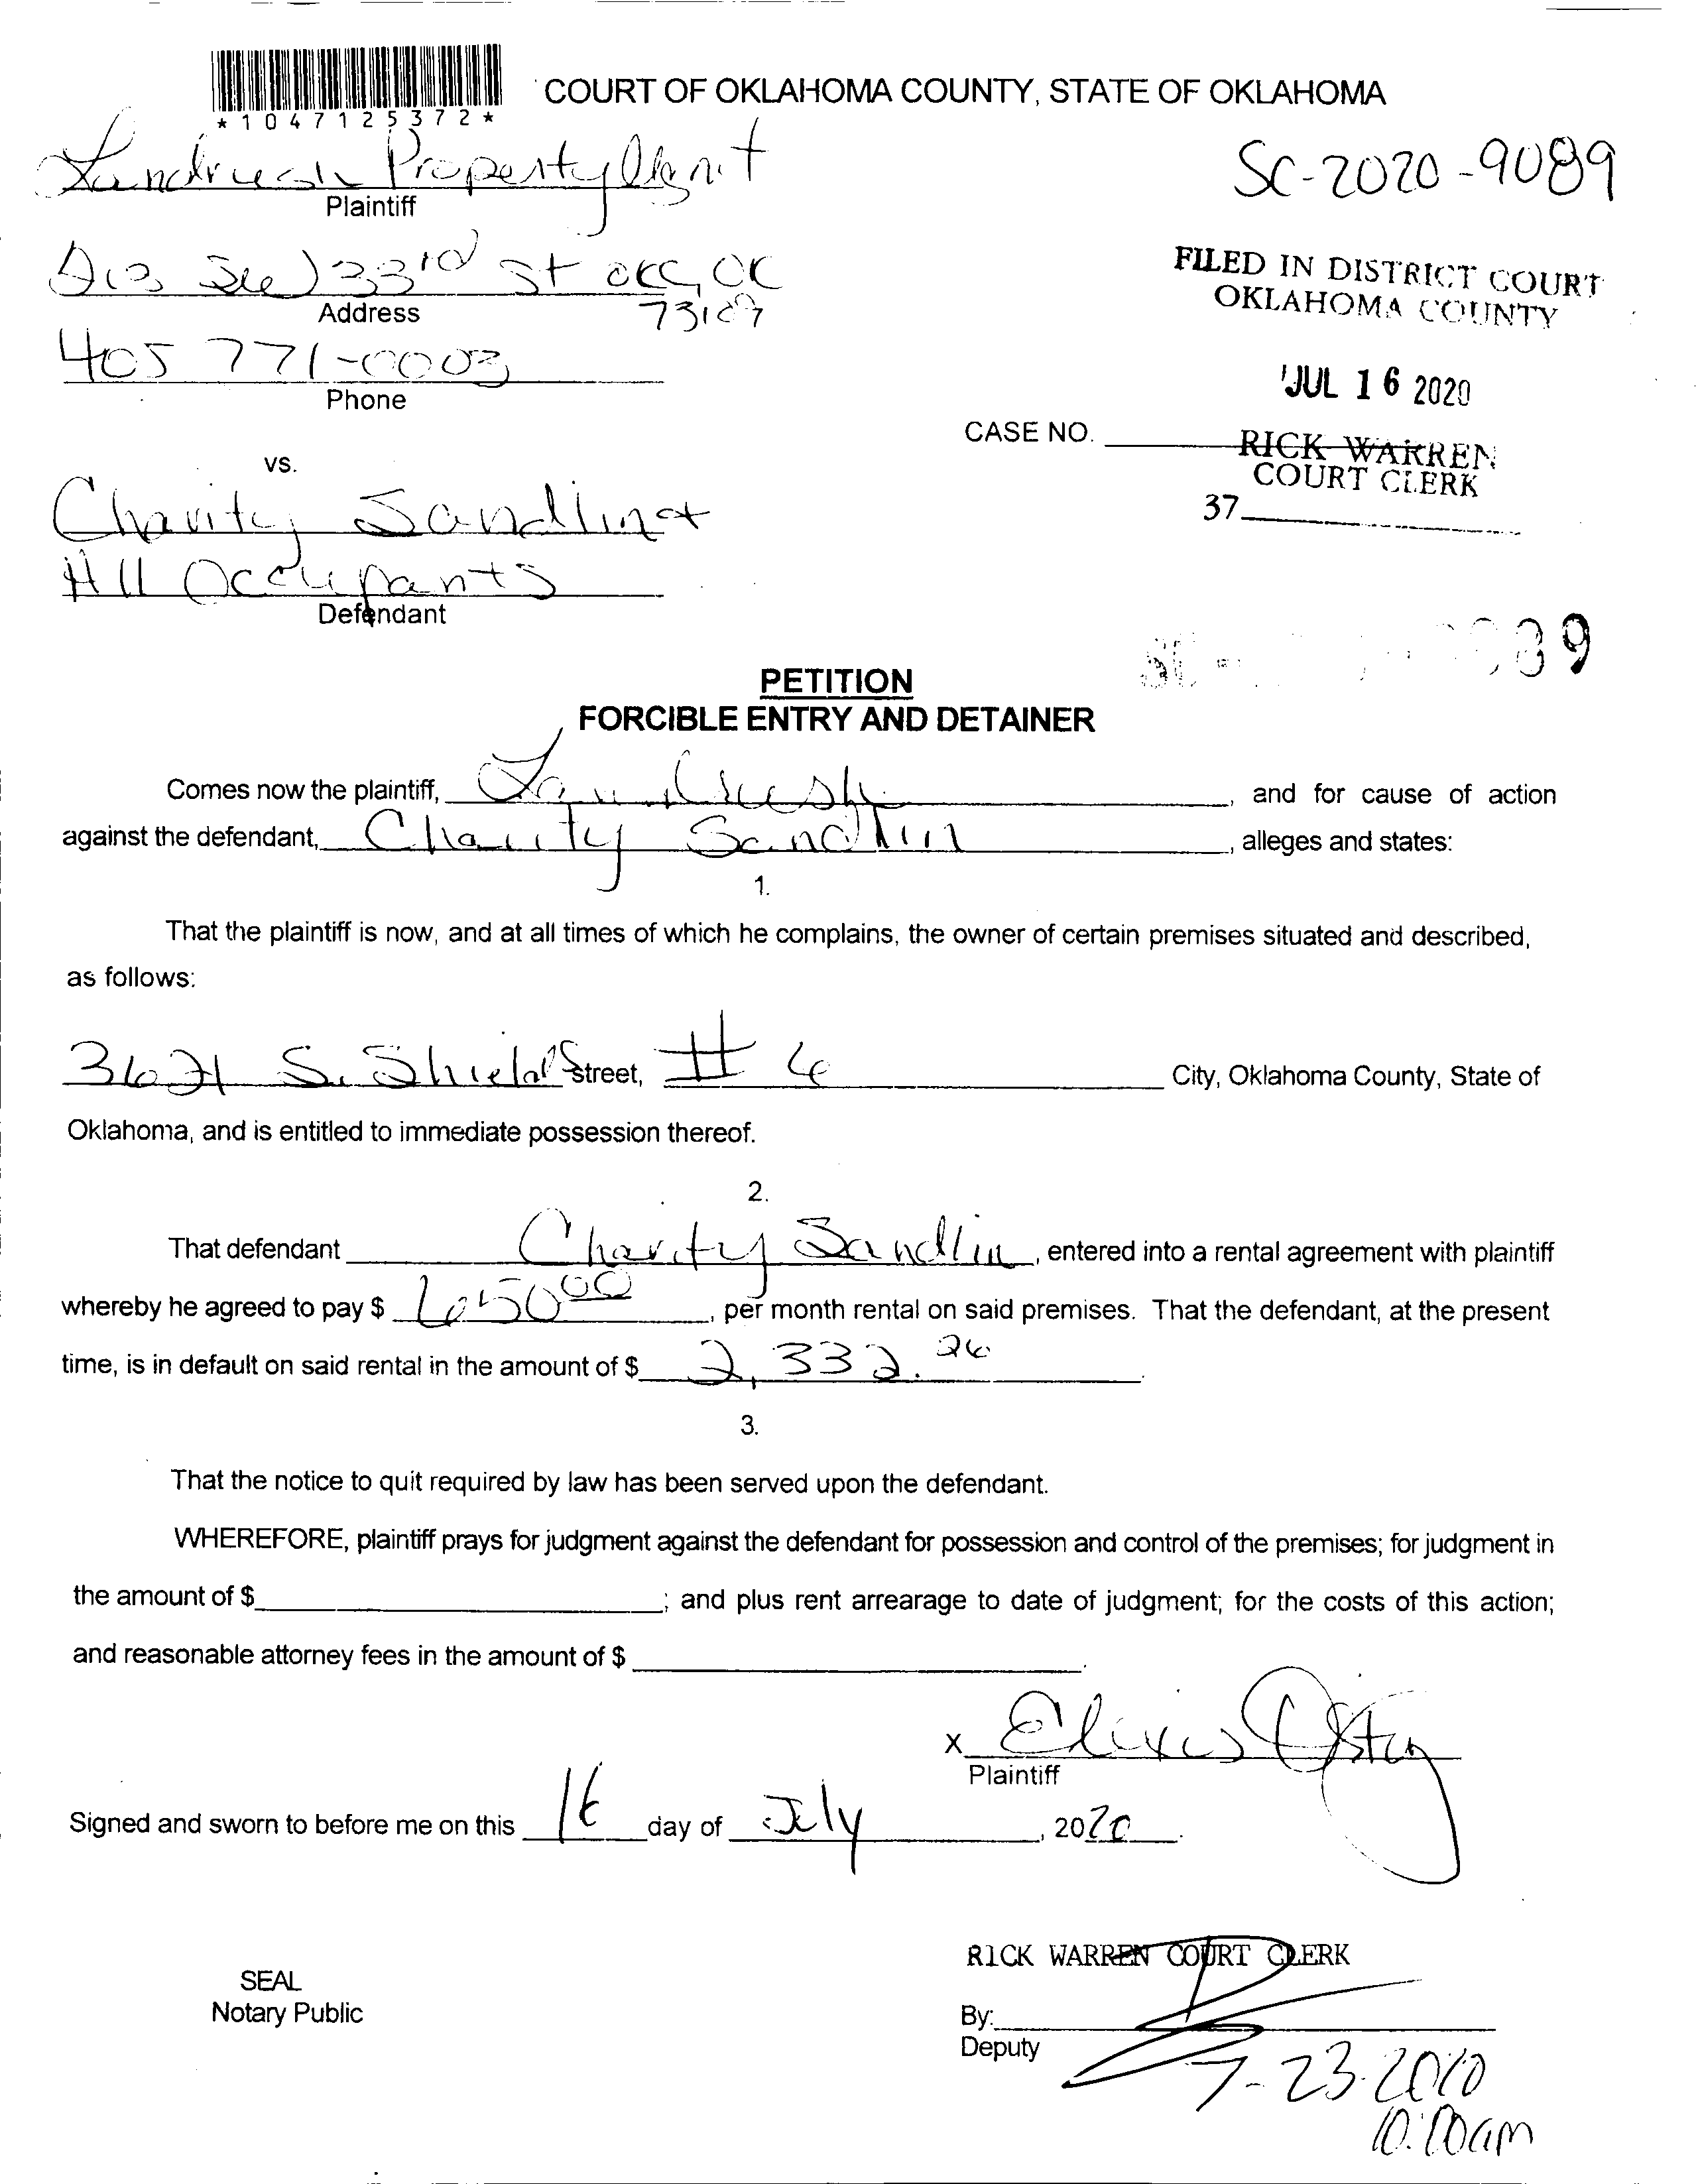 *1047125372*
COURT OF OKLAHOMA COUNTY, STATE OF OKLAHOMA
Landrush Property Mgmt
Plaintiff
SC-2020-9089
213 SW 33rd St OKC, OK
73109
Address
FILED IN DISTRICT COURT
OKLAHOMA COUNTY
405 771-0003
Phone
JUL 16 2020
CASE NO.
RICK WARREN
COURT CLERK
37
vs.
Charity Sandlin +
All Occupants
Defendant
PETITION
FORCIBLE ENTRY AND DETAINER
Comes now the plaintiff, Landrush, and for cause of action
against the defendant, Charity Sandlin, alleges and states:
1.
That the plaintiff is now, and at all times of which he complains, the owner of certain premises situated and described,
as follows:
3621 S. Shield Street, # 6 City, Oklahoma County, State of
Oklahoma, and is entitled to immediate possession thereof.
2.
That defendant Charity Sandlin, entered into a rental agreement with plaintiff
whereby he agreed to pay $ 650 00, per month rental on said premises. That the defendant, at the present
time, is in default on said rental in the amount of $ 2,332.26.
3.
That the notice to quit required by law has been served upon the defendant.
WHEREFORE, plaintiff prays for judgment against the defendant for possession and control of the premises; for judgment in
the amount of $ ; and plus rent arrearage to date of judgment; for the costs of this action;
and reasonable attorney fees in the amount of $ .
X
Plaintiff
Signed and sworn to before me on this 16 day of July, 2020.
RICK WARREN COURT CLERK
SEAL
Notary Public
By:
Deputy
7-23-2020
10:00am